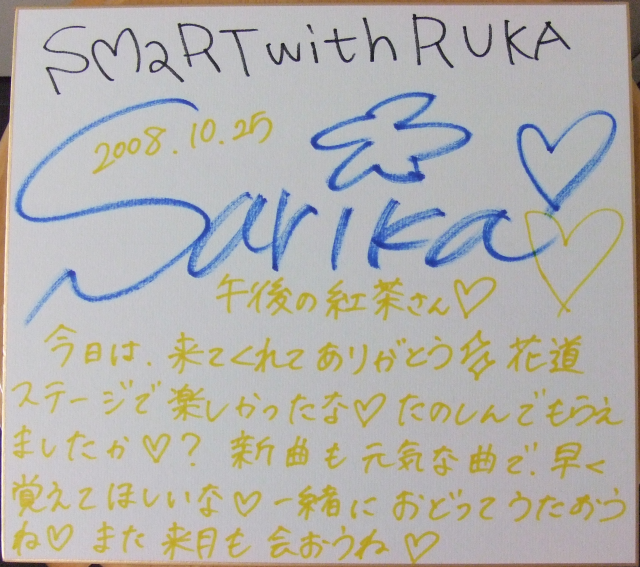 SMaRTwithRUKA
2008.10.25
Sarika
午後の紅茶さん♡
今日は、来てくれてありがとう☆花道
ステージで楽しかったな♡たのしんでもらえ
ましたか♡?新曲も元気な曲で、早く
覚えてほしいな♡一緒におどってうたおう
ね♡また来月も会おうね♡